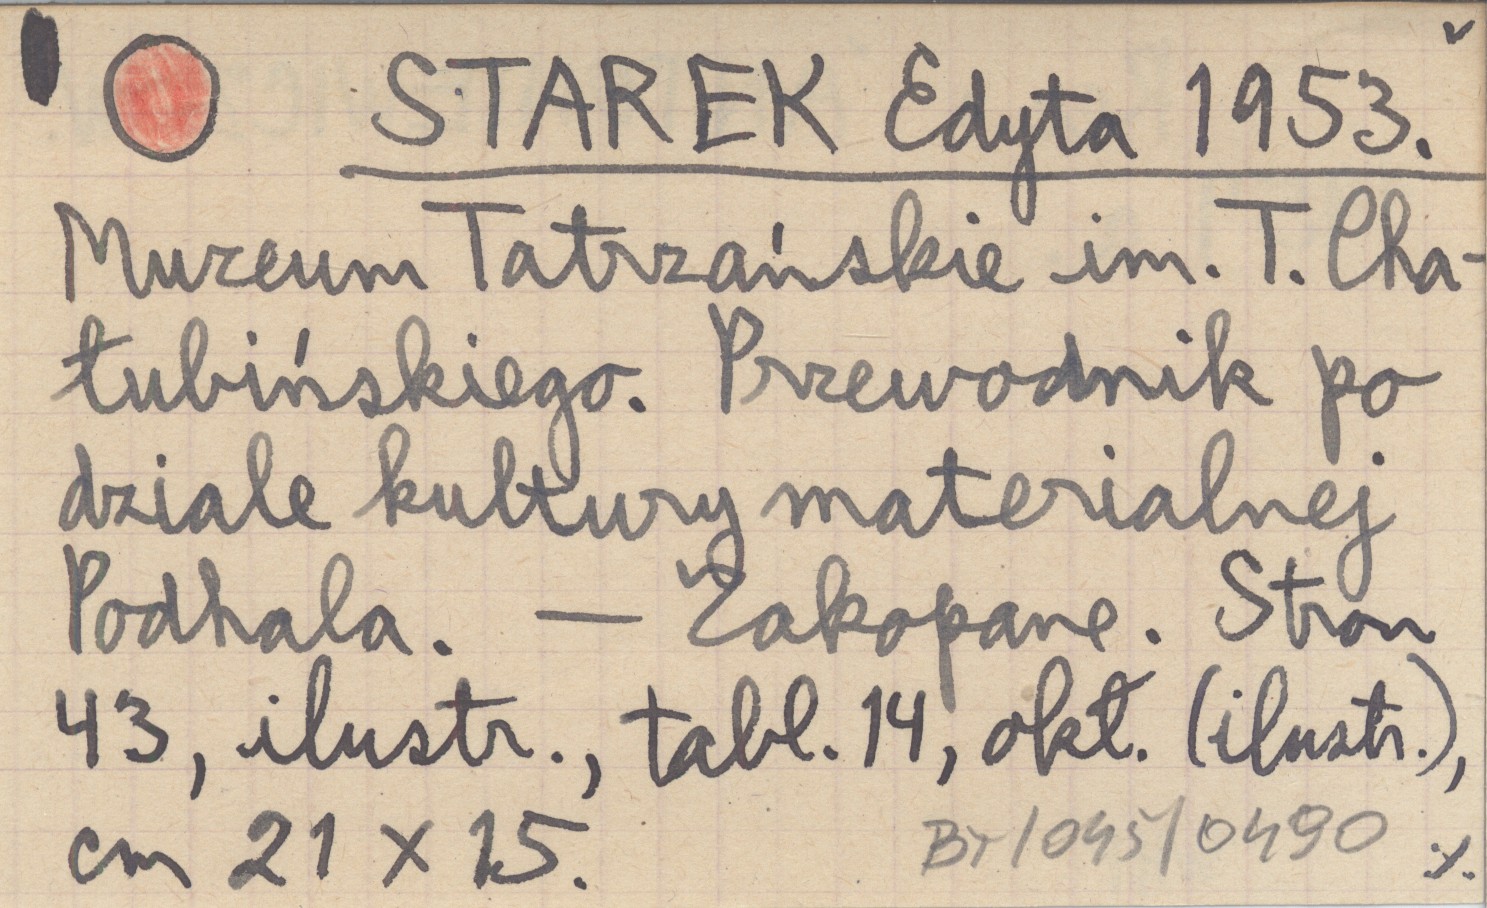 STAREK Edyta 1953.
Muzeum Tatrzańskie im. T. Cha-
łubińskiego. Przewodnik po
dziale kultury materialnej
Podhala. — Zakopane. Stron
43, ilustr., tabl. 14, okł. (ilustr.),
cm 21 x 15.
Br/045/0490